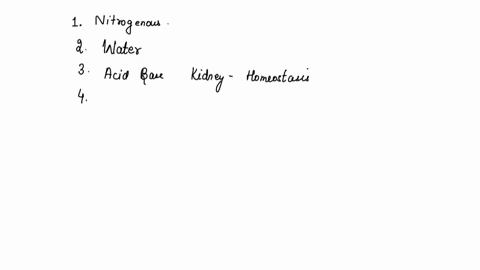 1. Nitrogenous.
2. Water
3. Acid Base Kidney - Homeostasis
4.